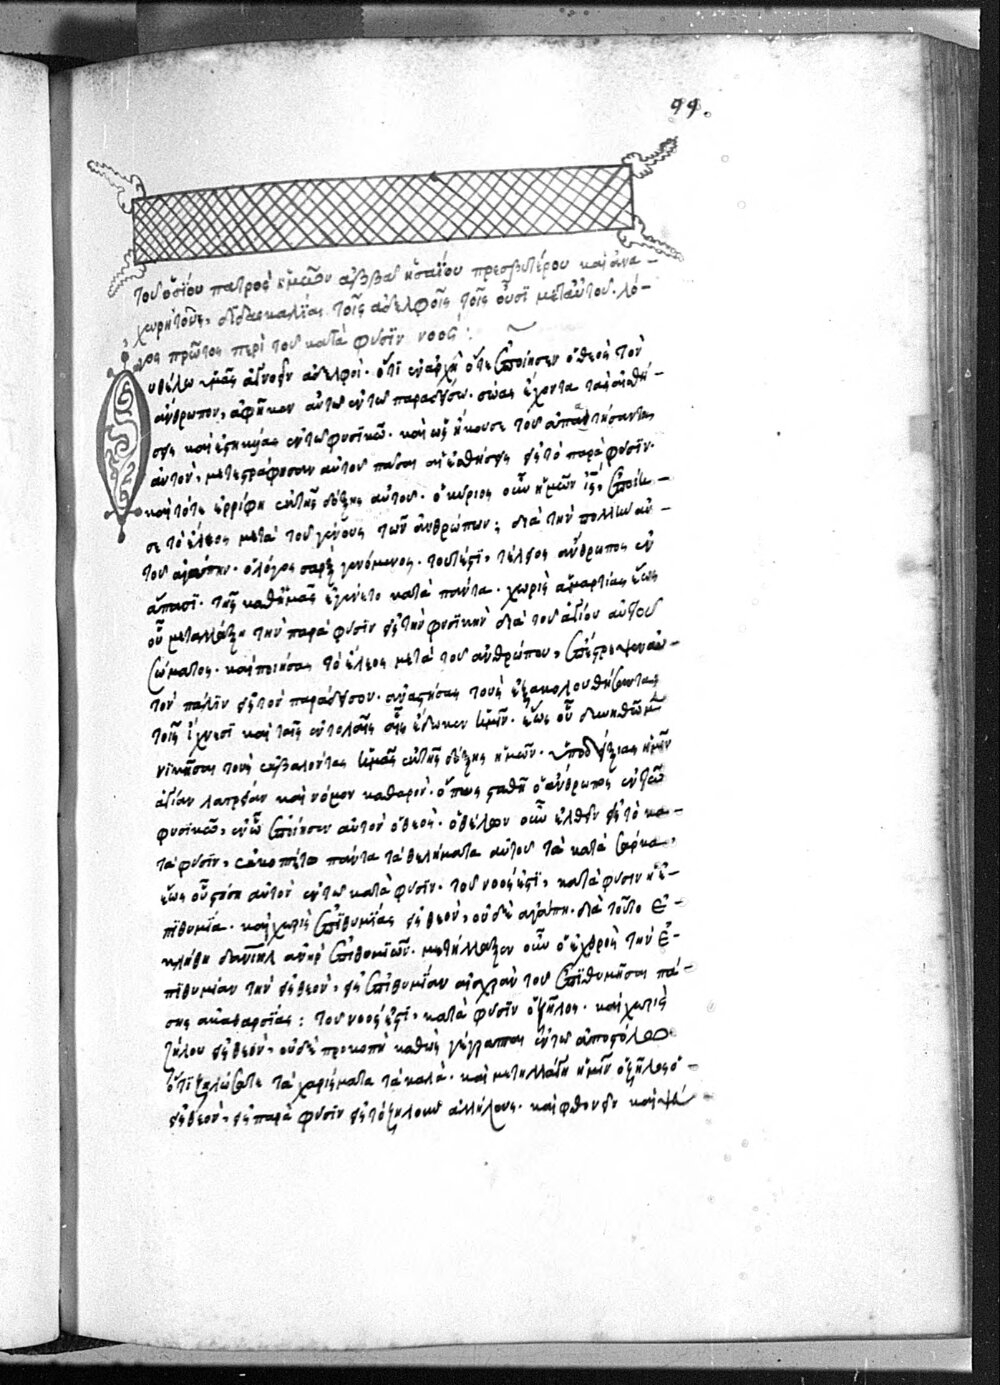 99.
τοῦ ὁσίου πατρὸς ἡμῶν ἀββᾶ ἡσαΐου πρεσβυτέρου καὶ ἀνα-
χωρητοῦ, διδασκαλίας τοῖς ἀδελφοῖς τοῖς οὖσι μετ αὐτοῦ. λό-
γος πρῶτος περὶ τοῦ κατὰ φύσιν νοός:
Οὐ θέλω ὑμᾶς ἀγνοεῖν ἀδελφοί. ὅτι ἐν ἀρχῆ ὅτε ἐποίησεν ὁ θεὸς τὸν
ἄνθρωπον, ἀφῆκεν αὐτὸν ἐν τῶ παραδείσω. σώας ἔχοντα τὰς αἰσθή-
σεις καὶ ἑστηκυίας ἐν τῶ φυσικῶ. καὶ ὡς ἤκουσε τοῦ ἀπατήσαντος
αὐτὸν, μετεστράφησαν αὐτοῦ πᾶσαι αἱ αἰσθήσεις εἰς τὸ παρὰ φύσιν.
καὶ τότε ἐρρίφη ἐκ τῆς δόξης αὐτοῦ. ὁ κύριος οὖν ἡμῶν ις, ἐποίη-
σε τὸ ἔλεος μετὰ τοῦ γένους τῶν ἀνθρώπων; διὰ τὴν πολλὴν αὐ-
τοῦ ἀγάπην. ὁ λόγος σαρξ γενόμενος. τουτέστι, τέλειος ἄνθρωπος ἐν
ἅπασι. τῆς καθ ἡμᾶς ἐγένετο κατὰ πάντα. χωρὶς ἁμαρτίας ἕως
οὗ μεταλλάξη τὴν παρὰ φύσιν εἰς τὴν φυσικὴν διὰ τοῦ ἁγίου αὐτοῦ
σώματος. καὶ ποιήσας τὸ ἔλεος μετὰ τοῦ ἀνθρώπου, ἐπέστρεψεν αὐ-
τὸν πάλιν εἰς τὸν παράδεισον. ἀναστήσας τοὺς ἐξακολουθήσαντας
τοῖς ἴχνεσι καὶ ταῖς ἐντολαῖς αἷς ἔδωκεν ἡμῖν. ἕως οὗ
νικῆσαι τοὺς ἐκβαλόντας ἡμᾶς ἐκ τῆς δόξης ἡμῶν. ὑποδείξας ἡμῖν
ἁγίαν λατρείαν καὶ νόμον καθαρὸν. ὅπως σταθῆ ὁ ἄνθρωπος ἐν τῶ
φυσικῶ, ἐν ὧ ἐποίησεν αὐτὸν ὁ θεὸς. ὁ θέλων οὖν ἐλθεῖν εἰς τὸ κα-
τὰ φύσιν, ἐκκοπέτω πάντα τὰ θελήματα αὐτοῦ τὰ κατὰ σάρκα,
ἕως οὗ στήση αὐτὸν ἐν τῶ κατὰ φύσιν. τοῦ νοός ἐστι, κατὰ φύσιν ἡ ἐ-
πιθυμία. καὶ χωρὶς ἐπιθυμίας εἰς θεὸν, οὐδὲ ἀγάπη. διὰ τοῦτο ἐ-
κλήθη δανιὴλ ἀνὴρ ἐπιθυμιῶν. μετήλλαξεν οὖν ὁ ἐχθρὸς τὴν ἐ-
πιθυμίαν τὴν εἰς θεὸν, εἰς ἐπιθυμίαν αἰσχρὰν τοῦ ἐπιθυμῆσαι πά-
σης ἀκαθαρσίας: τοῦ νοός ἐστι, κατὰ φύσιν ὁ ζῆλος. καὶ χωρὶς
ζήλου εἰς θεὸν, οὐδὲ προκοπὴ καθὼς γέγραπται ἐν τῶ ἀποστόλω
ὅτι ζηλώσατε τὰ χαρίσματα τὰ καλὰ. καὶ μετηλλάγη ἡμῖν ὁ ζῆλος ὁ
εἰς θεὸν, εἰς παρὰ φύσιν εἰς τὸ ζηλοῦν ἀλλήλους. καὶ φθονεῖν καὶ ψεύ